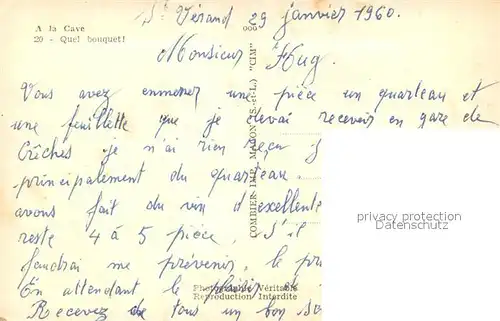 A la Cave
20 - Quel bouquet!
St Vérand 29 janvier 1960.
Monsieur Hug.
Vous avez emmener une pièce un quarteau et
une feuillette que je devai recevoir en gare de
Crêches je n'ai rien reçu
principalement du quarteau.
avons fait du vin d'excellente
reste 4 à 5 pièce, S'il
faudrai me prévenir, le
En attendant le plaisir
Recevez de tous un bon
COMBIER IMP. MACON (S.-et-L.) "CIM"
Photographie Véritable
Reproduction Interdite
privacy protection
Datenschutz